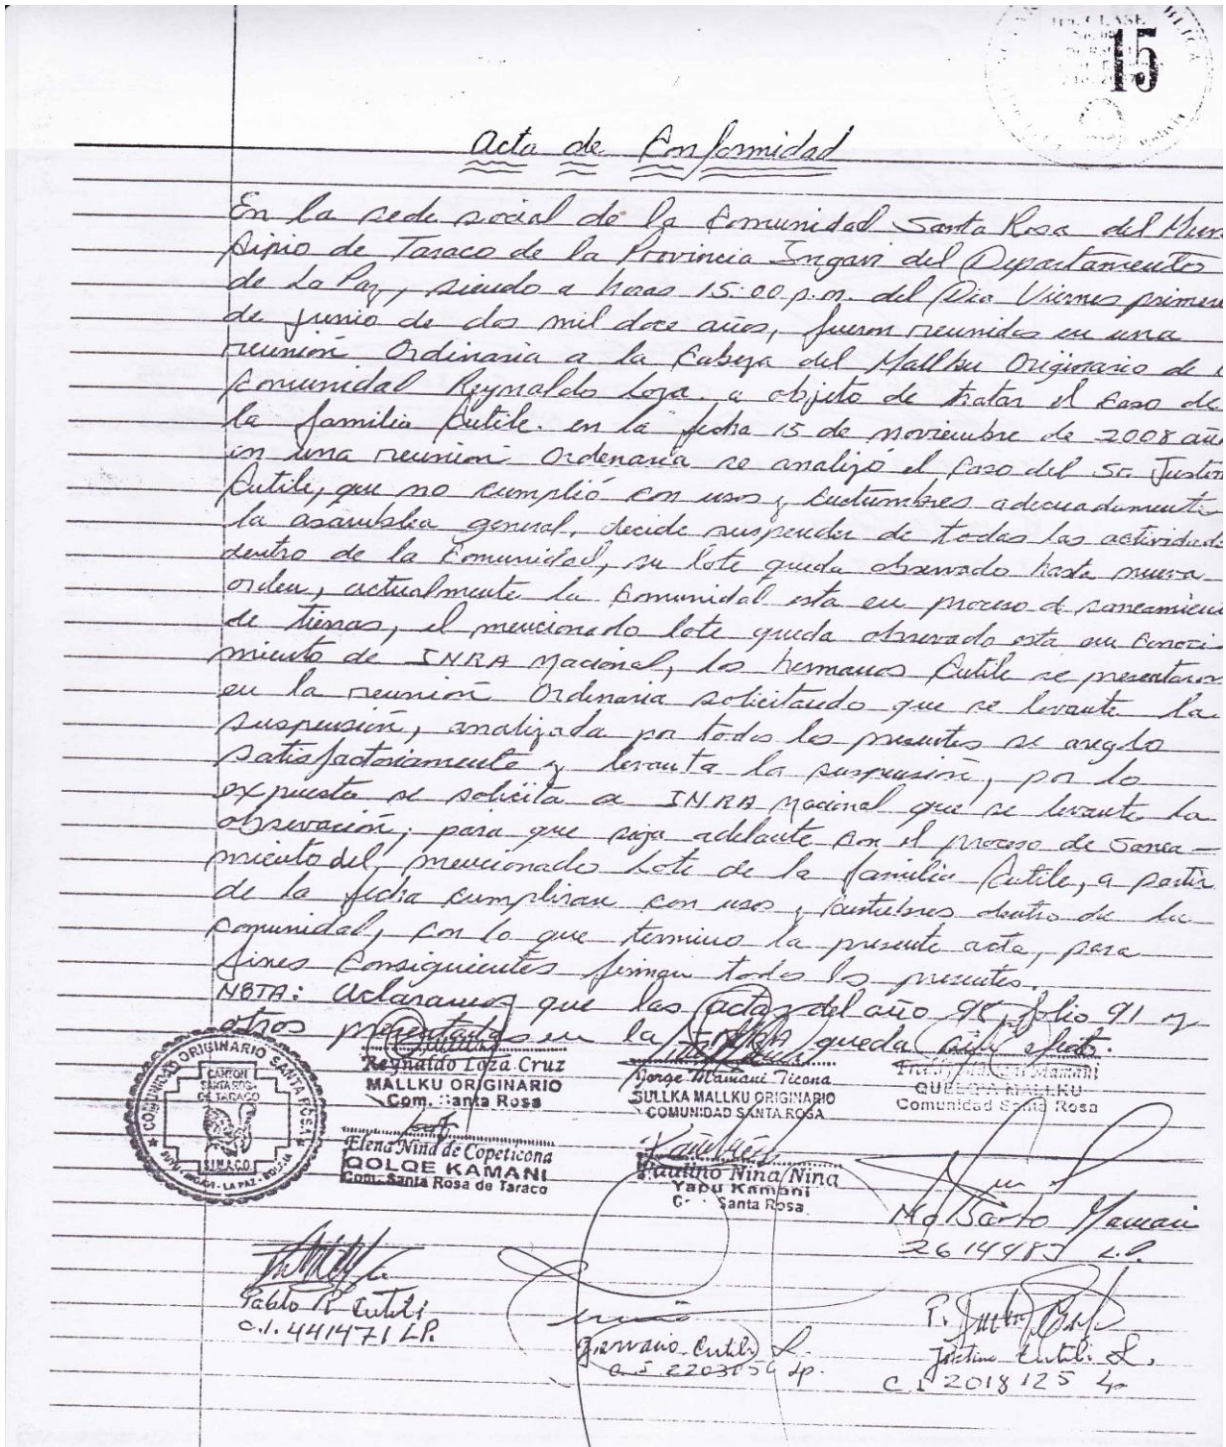 15
Acta de Conformidad
En la sede social de la Comunidad Santa Rosa del Muni
sipio de Taraco de la Provincia Ingavi del Departamento
de La Paz, siendo a horas 15:00 p.m. del Dia Viernes primero
de junio de dos mil doce años, fueron reunidos en una
reunión Ordinaria a la Cabeza del Mallku Origionario de
Comunidad Reynaldo Loza. a objeto de tratar el Caso de
la familia Cutile. en la fecha 15 de noviembre de 2008 años
en una reunión Ordenaria se analizó el Caso del Sr. Justin
Cutile, que no cumplió con usos y Custumbres adecuadamente
la asamblea general, decide suspender de todas las actividades
dentro de la Comunidad, su lote queda observado hasta nueva
orden, actualmente la Comunidad esta en proceso de saneamien
de tierras, el mencionado lote queda observado esta en Conoci-
miento de INRA Nacional, los hermanos Cutile se presentaron
en la reunión Ordenaria solicitando que se levante la
suspensión, analizada por todos los presentes se areglo
satisfactoriamente y levanta la suspensión, por lo
expuesto se solicita a INRA Nacional que se levante la
observación, para que siga adelante con el proceso de Sanea-
miento del mencionado Lote de la familia Cutile, a partir
de la fecha cumpliran con usos y dentro de la
comunidad, con lo que termino la presente acta, para
fines Consiguientes firman todos los presentes.
NOTA: Aclaramos que las actas del año 98, folio 91 y
otros presentados en la INRA queda sin efecto.
COMUNIDAD ORIGINARIO SANTA ROSA
CANTON
SANTA ROSA
DE TARACO
S.I.M.A.C.O.
LA PAZ - BOLIVIA
Reynaldo Loza Cruz
MALLKU ORIGINARIO
Com. Santa Rosa
Jorge Mamani Ticona
SULLKA MALLKU ORIGINARIO
COMUNIDAD SANTA ROSA
Mamani
QUELQ'A MALLKU
Comunidad Santa Rosa
Elena Nina de Copeticona
QOLQE KAMANI
Com. Santa Rosa de Taraco
Paulino Nina Nina
Yapu Kamani
Santa Rosa
Mamani
L.P.
Pablo R. Cutili
C.I. 441471 LP.
Gervacio Cutili L.
Lp.
P.
Justino Cutili L.
C.I 2018125 Lp